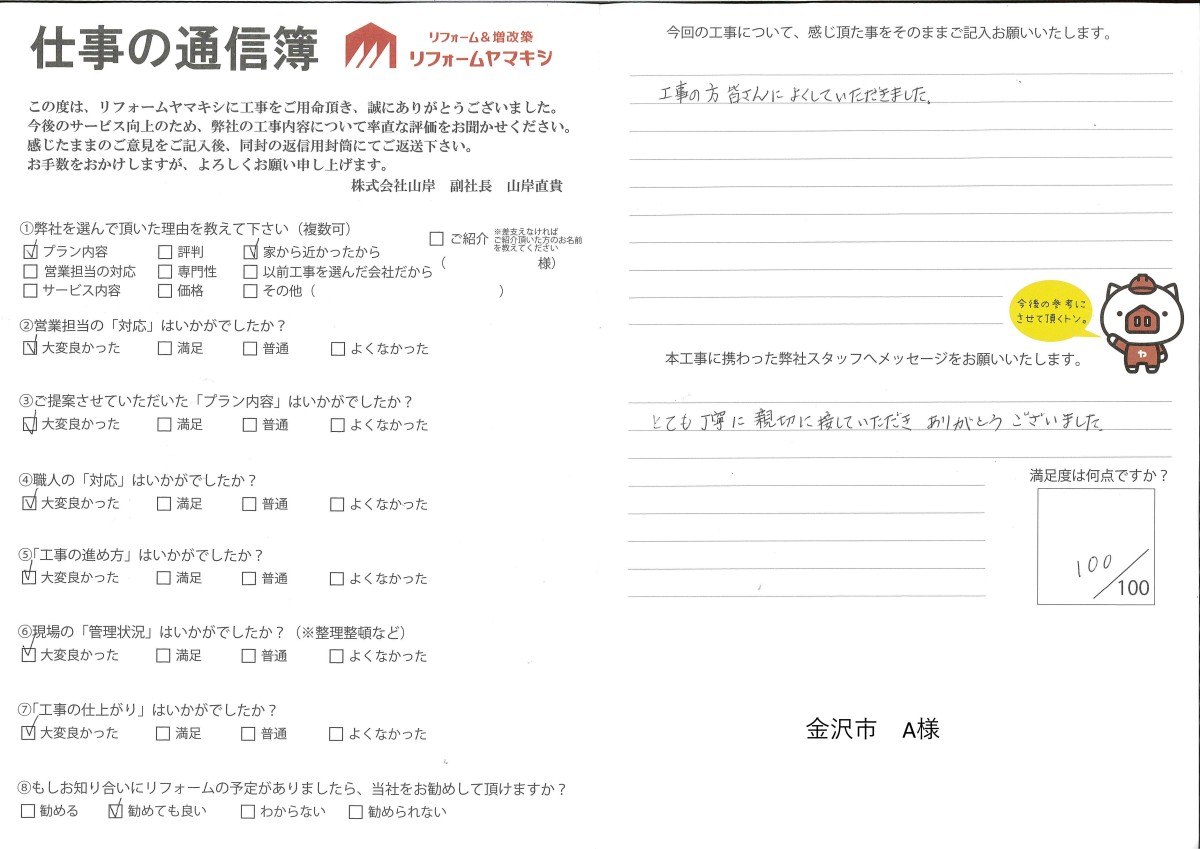 仕事の通信簿
リフォーム&増改築
リフォームヤマキシ
この度は、リフォームヤマキシに工事をご用命頂き、誠にありがとうございました。
今後のサービス向上のため、弊社の工事内容について率直な評価をお聞かせください。
感じたままのご意見をご記入後、同封の返信用封筒にてご返送下さい。
お手数をおかけしますが、よろしくお願い申し上げます。
株式会社山岸 副社長 山岸直貴
①弊社を選んで頂いた理由を教えて下さい(複数可)
☑プラン内容 □評判 ☑家から近かったから □ご紹介 ※差支えなければ
ご紹介頂いた方のお名前
を教えてください
□営業担当の対応 □専門性 □以前工事を選んだ会社だから ( 様)
□サービス内容 □価格 □その他( )
②営業担当の「対応」はいかがでしたか?
☑大変良かった □満足 □普通 □よくなかった
③ご提案させていただいた「プラン内容」はいかがでしたか?
☑大変良かった □満足 □普通 □よくなかった
④職人の「対応」はいかがでしたか?
☑大変良かった □満足 □普通 □よくなかった
⑤「工事の進め方」はいかがでしたか?
☑大変良かった □満足 □普通 □よくなかった
⑥現場の「管理状況」はいかがでしたか?(※整理整頓など)
☑大変良かった □満足 □普通 □よくなかった
⑦「工事の仕上がり」はいかがでしたか?
☑大変良かった □満足 □普通 □よくなかった
⑧もしお知り合いにリフォームの予定がありましたら、当社をお勧めして頂けますか?
□勧める ☑勧めても良い □わからない □勧められない
今回の工事について、感じ頂た事をそのままご記入お願いいたします。
工事の方 皆さんに よくしていただきました。
今後の参考に
させて頂くトン。
ヤ
本工事に携わった弊社スタッフへメッセージをお願いいたします。
とても 丁寧に 親切に 接していただき ありがとう ございました。
満足度は何点ですか?
100/100
金沢市 A様